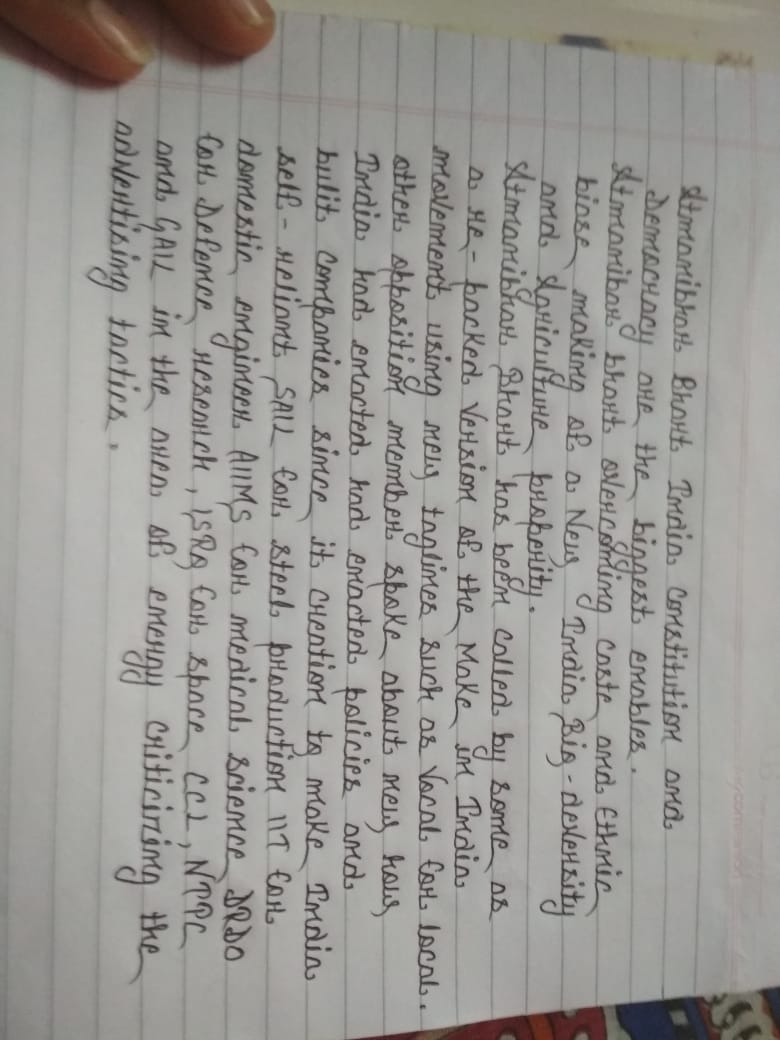 Atmanibhar Bhart India constitution and
Democracy are the biggest enables.
Atmanibar bhart overcoming caste and Ethnic
biase making of a New India Big-devensity
and Agriculture proberity.
Atmanibhar Bhart has been called by some as
a re-packed version of the Make in India
movement using new taglines such as Vocal for local.
other opposition member spoke about new how
India had enacted had enacted policies and
bulit companies since it creation to make India
self-reliant SAIL for steel production IIT for
domestic engineer AIIMS for medical science DRDO
for Defence research, ISRO for space CCL, NTPC
and GAIL in the area of energy criticizing the
advertising tactics.